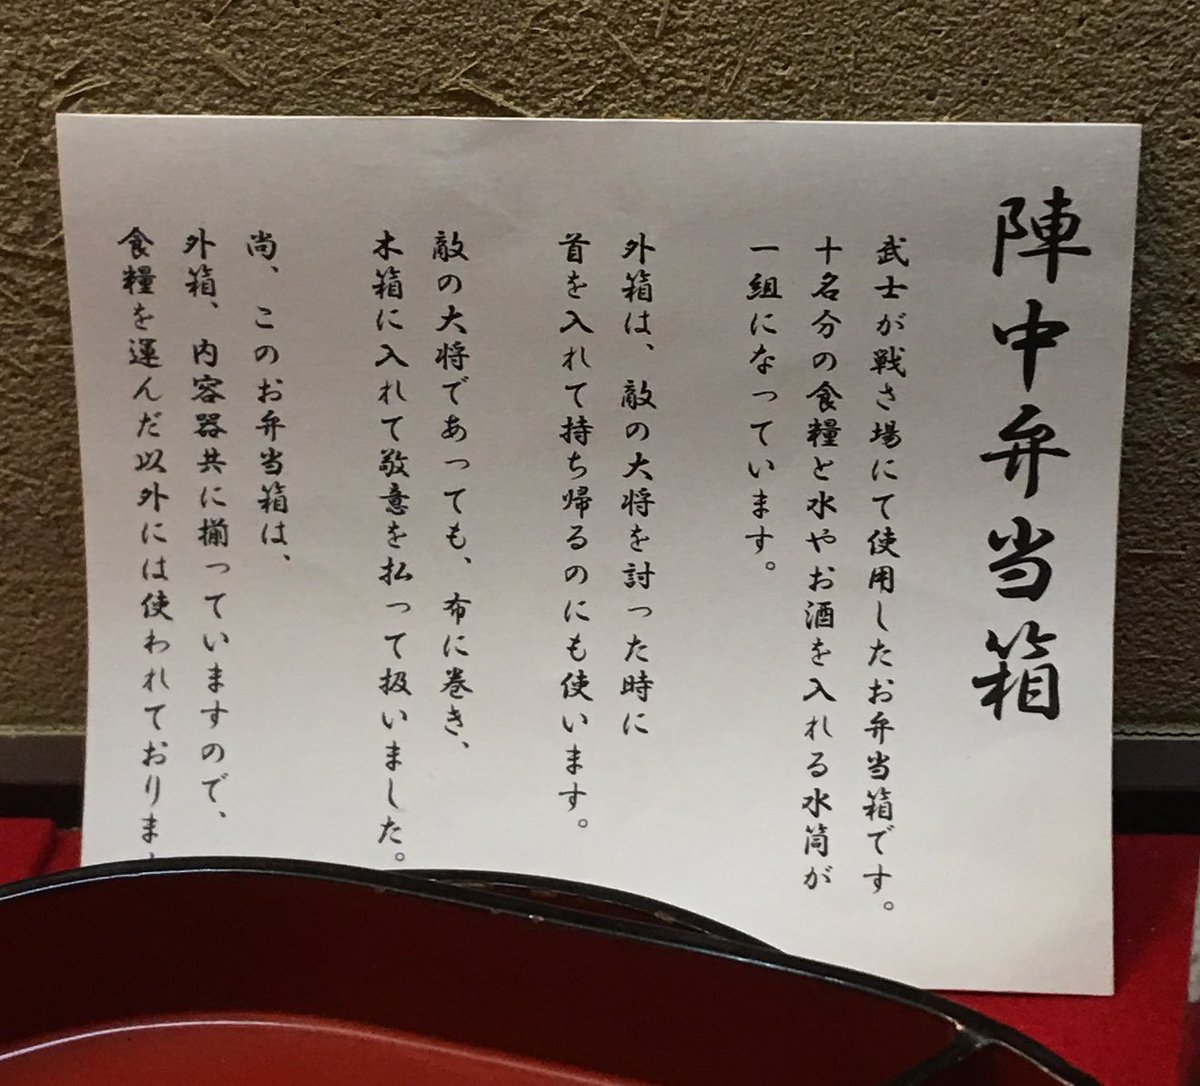 陣中弁当箱
武士が戦さ場にて使用したお弁当箱です。
十名分の食糧と水やお酒を入れる水筒が
一組になっています。
外箱は、敵の大将を討った時に
首を入れて持ち帰るのにも使います。
敵の大将であっても、布に巻き、
木箱に入れて敬意を払って扱いました。
尚、このお弁当箱は、
外箱、内容器共に揃っていますので、
食糧を運んだ以外には使われておりま